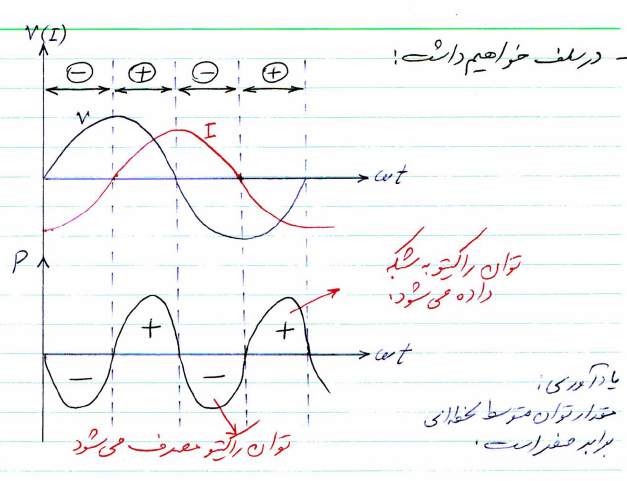 - در سلف خواهیم داشت:
V(I)
⊖ ⊕ ⊖ ⊕
V
I
ωt
P
توان راکتیو به شبکه
داده می‌شود.
+ +
ωt
- -
یادآوری:
مقدار توان متوسط لحظه‌ای
برابر صفر است.
توان راکتیو مصرف می‌شود